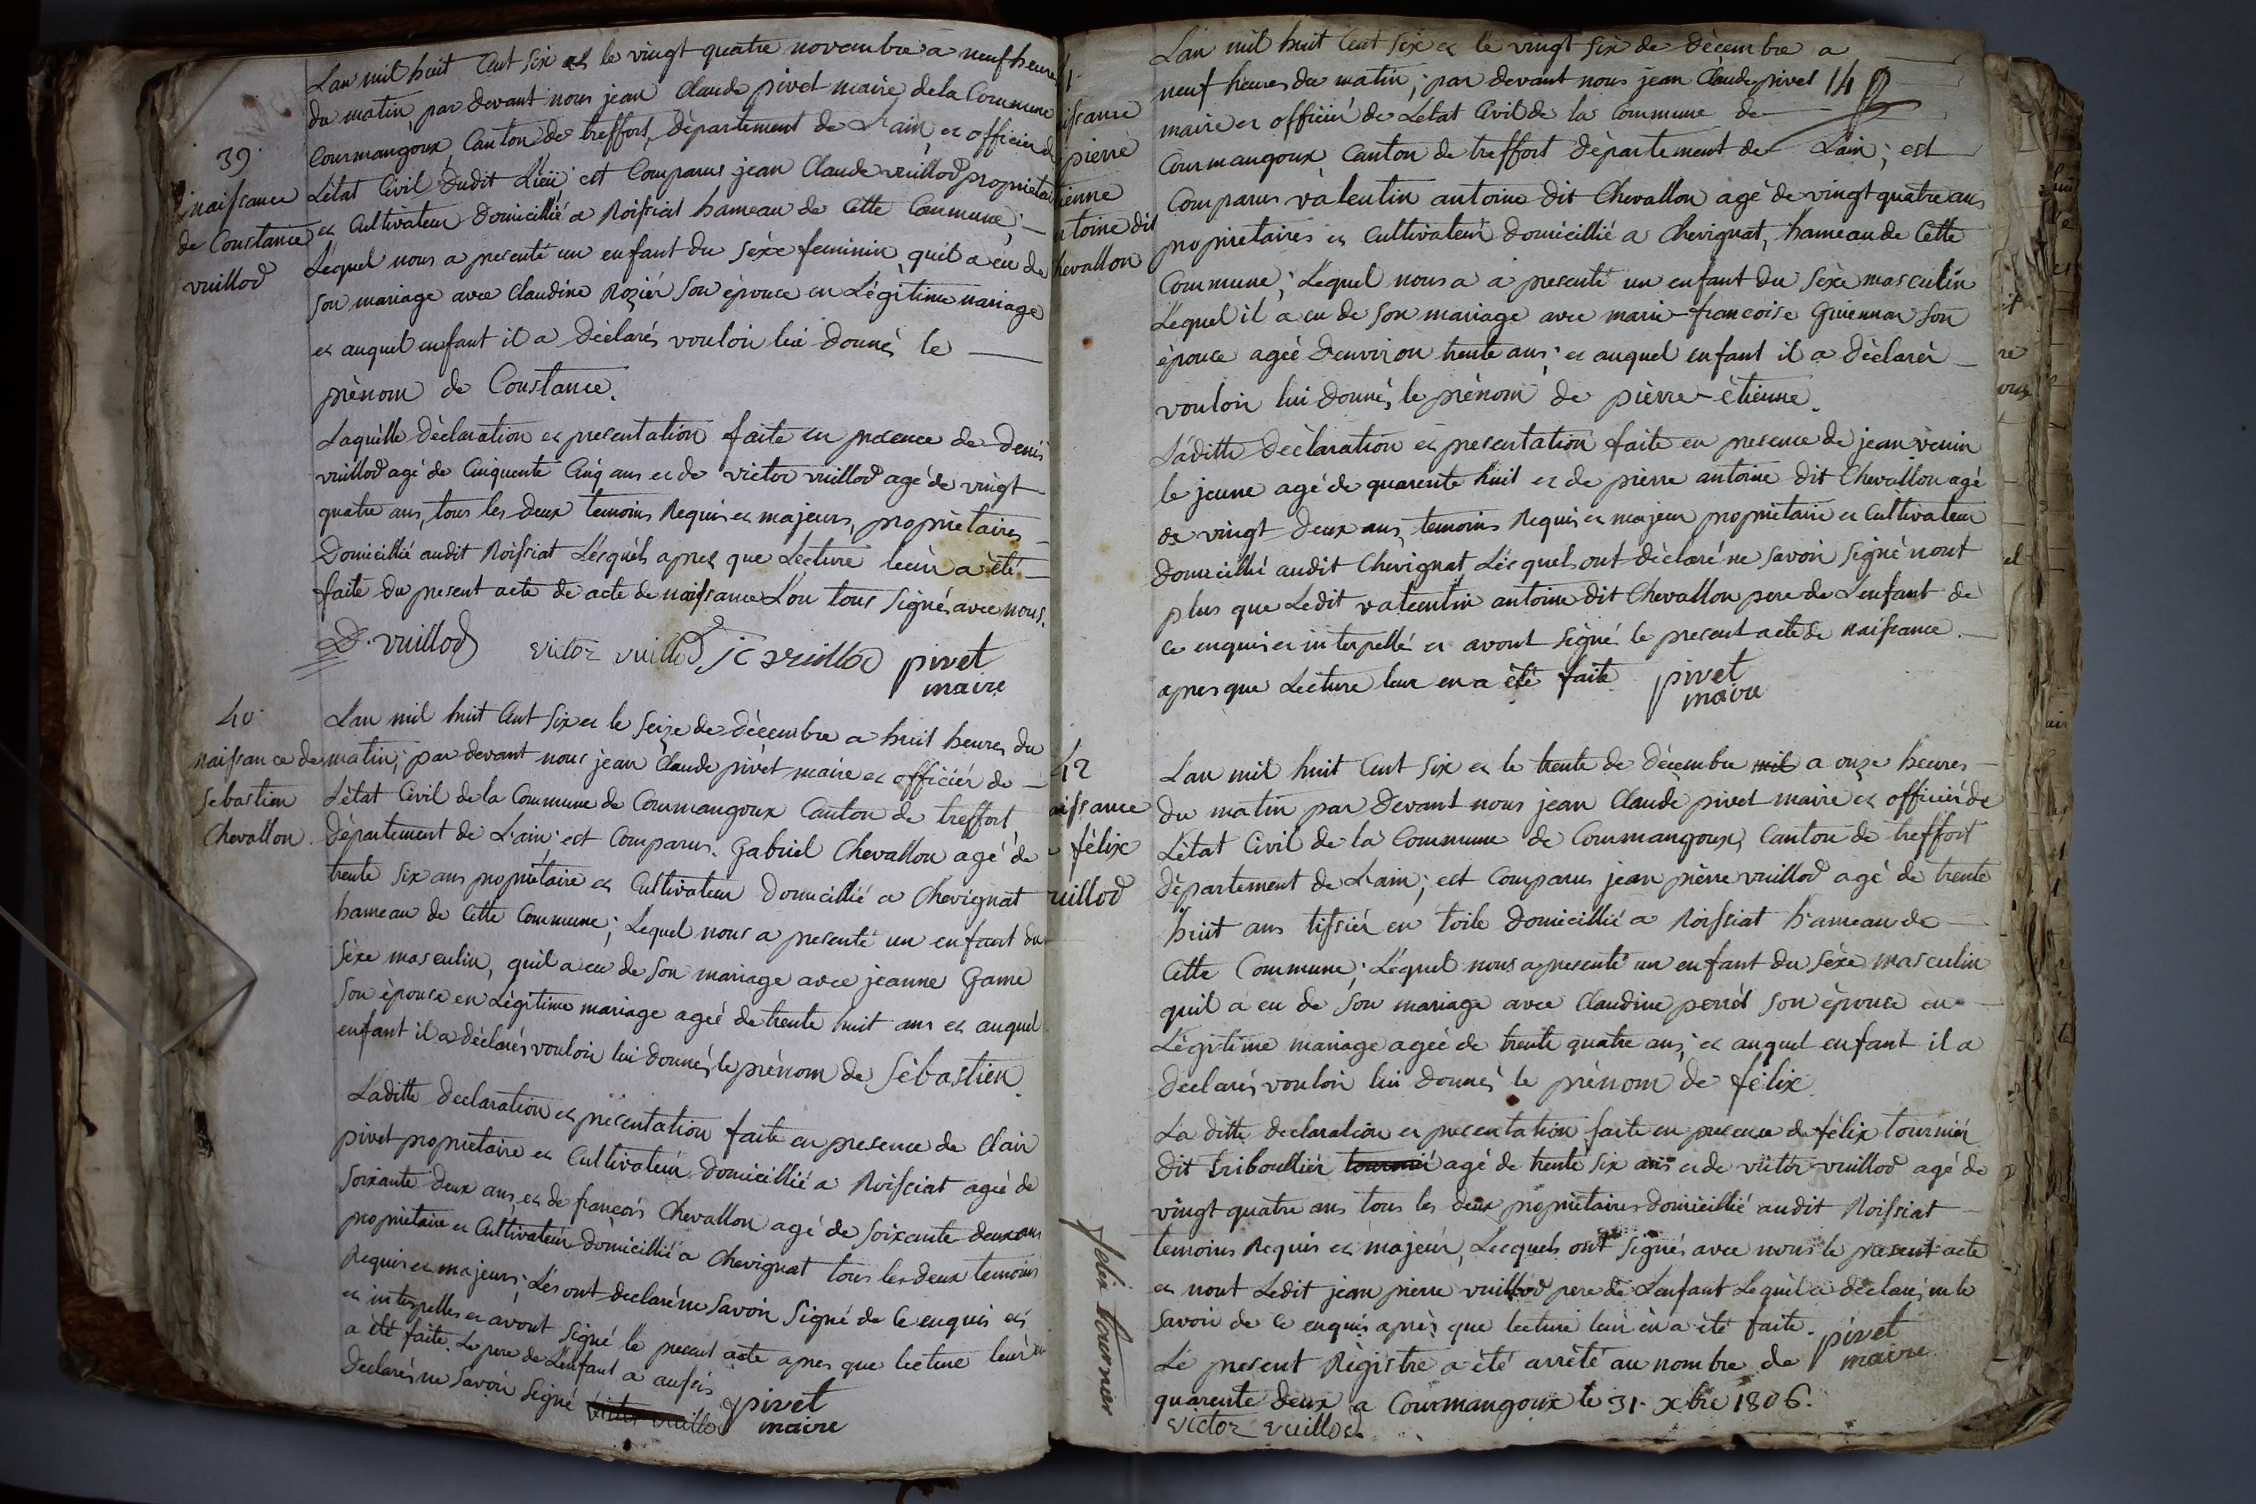 39.
naissance
de Constance
vuillod
Lan mil huit Cent six et le vingt quatre novembre a neuf heures
du matin, par devant nous jean Claude pivet maire dela Commune
Courmangoux, Canton de treffort, département de L'ain, et officier de
L'état Civil dudit Lieu est Comparus jean Claude vuillod propriétair
et Cultivateur domicillié a Roissiat hameau de Cette Commune;
Lequel nous a presenté un enfant du sèxe feminin quil a èu de
son mariage avec Claudine Rozier son èpouce en Légitime mariage
et auquel enfant il a dèclarés vouloir lui donnés le
prènom de Constance.
Laquèlle dèclaration et presentation faite en presence de denis
vuillod agé de Cinquente Cinq ans et de victor vuillod agé de vingt
quatre ans, tous les deux temoins Requis et majeurs, propriètaires
Domicillié audit Roissiat Lesquèls apres que Lecture leur a èté
faite du present acte de acte de naissance L'on tous signés avec nous.
D. vuillod victor vuillod J C vuillod pivet
maire
40.
naissance de
sebastien
Chevallon.
Lan mil huit Cent six et le seize de dècembre a huit heures du
matin; par devant nous jean Claude pivet maire et officiér de
L'ètat Civil de la Commune de Courmangoux Canton de treffort
Département de L'ain; est Comparus. Gabriel Chevallon agé de
trente six ans propriètaire et Cultivateur domicillié a Chevignat
hameau de Cette Commune; Lequel nous a presenté un enfant du
sèxe masculin, quil a eu de son mariage avec jeanne Game
son èpouce en Légitime mariage ageé de trente huit ans et auquel
enfant il a déclarés vouloir lui donnés le prénom de Sèbastien.
Laditte declaration et presentation faite en presence de Clair
pivet proprietaire et Cultivateur domicillié a Roissiat ageé de
soixante deux ans, et de françois Chevallon agé de soixante deux ans
propriètaire et Cultivateur domicillié a Chevignat tous les deux temoins
Requis et majeurs; Lés ont declaré ne savoir signé de Ce enquis et
et interpelles et avont signé le present acte apres que lecture leur en
a èté faite. Le pere de L'enfant a aussis
Declarés ne savoir signé victor vuillod pivet
maire
41
aissance
pierre
tienne
ntoine dit
hevallon
Lan mil huit Cent six et le vingt six de dècembre a
neuf heures du matin; par devant nous jean Claude pivet 14
maire et officiér de L'état Civil de la Commune de
Courmangoux Canton de treffort dèpartement de L'ain; est
Comparus valentin antoine dit Chevallon agé de vingt quatre ans
propriètaires et Cultivateur domicillié a Chevignat, hameau de Cette
Commune; Lequel nous a a presenté un enfant du sèxe masculin
Lequel il a eu de son mariage avec marie-francoise Guiennar son
èpouce ageé denviron trente ans; et auquel enfant il a dèclarér
vouloir lui donnés le prènom de pièrre-ètienne.
Laditte dèclaration et presentation faite en presence de jean venin
le jeune agé de quarente huit et de pierre antoine dit Chevallon agé
de vingt deux ans, temoins Requis et majeur propriètaire et Cultivateur
domicillié audit Chevignat Lesquels ont déclaré ne savoir signé nont
plus que Ledit valentin antoine dit Chevallon pere de L'enfant de
Ce enquis et interpellé et avont signé le present acte de naissance
apres que Lecture leur en a èté faite pivet
maire
42
aissance
e félix
vuillod
Lan mil huit Cent six et le trente de dècembre mil a onze heures
du matin par devant nous jean Claude pivet maire et officiér de
L'ètat Civil de la Commune de Courmangoux, Canton de treffort
Dèpartement de L'ain; est Comparus jean pièrre vuillod agé de trente
huit ans tissiér en toile domicillié a Roissiat hameau de
Cette Commune; Lequel nous a presenté un enfant du sèxe masculin
quil a eu de son mariage avec Claudine perret son èpouce en
Lègitime mariage ageé de trente quatre ans; et auquel enfant il a
declarés vouloir lui donnés le prènom de félix.
La ditte declaration et presentation faite en presence de félix tournier
dit triboullier tournié agé de trente six ans et de victor vuillod agé de
vingt quatre ans tous les deux propriètaires domicillié audit Roissiat
temoins Requis et majeur, Lesquels ont signés avec nous le present acte
et nont Ledit jean pierre vuillod pere de L'enfant Lequèl a déclaré, ne le
savoir de Ce enquis aprés que lecture leur èn a été faite. pivet
maire
Le present Règistre a èté arrèté au nombre de
quarente deux a Courmangoux le 31. xbre 1806.
victor vuillod
félix tournier